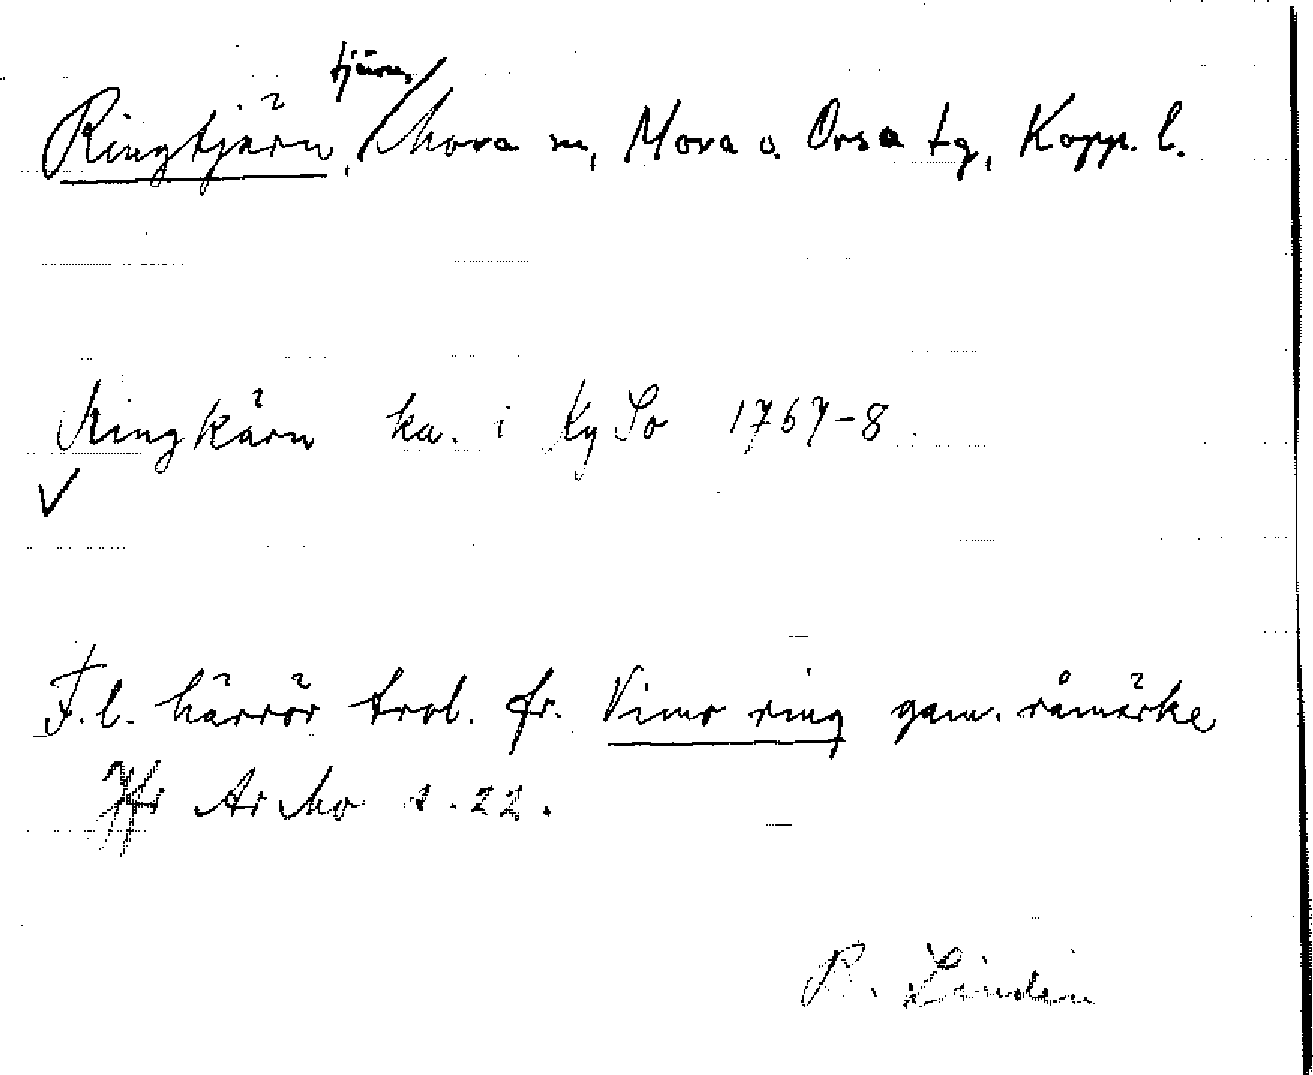 tjärn,
Ringtjärn, Mora sn, Mora o. Orsa tg, Kopp. l.
Ringkärn ka. i Ky So 1767-8.
F.l. härrör trol. fr. Vimo ring gam. råmärke
Jfr Ar Mo s. 22.
B. Lindén